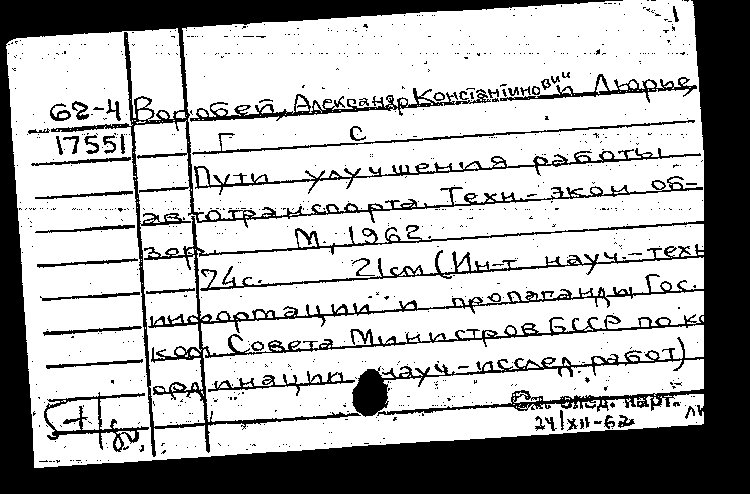 1
62-4 Воробей, Александр Константинович и Люрье,
17551 Г С
Пути улучшения работы
автотранспорта. Техн.-экон. об-
зор. М., 1962.
74с. 21см (Ин-т науч.-техн
информации и пропаганды Гос.
ком. Совета Министров БССР по ко
ординации науч.-исслед. работ)
См. след. карт.
24/XII-62